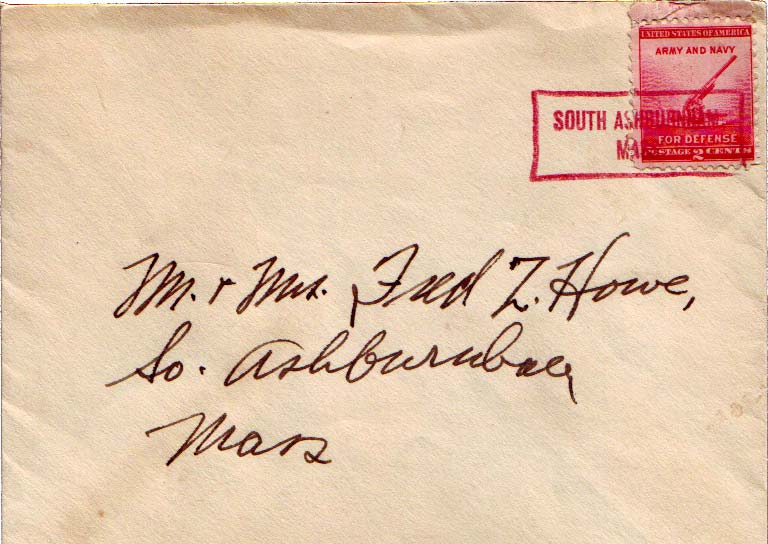 UNITED STATES OF AMERICA
ARMY AND NAVY
SOUTH ASHBURNHAM
MASS
FOR DEFENSE
POSTAGE 2 CENTS
Mr. & Mrs. Fred Z. Howe,
So. Ashburnham
Mass